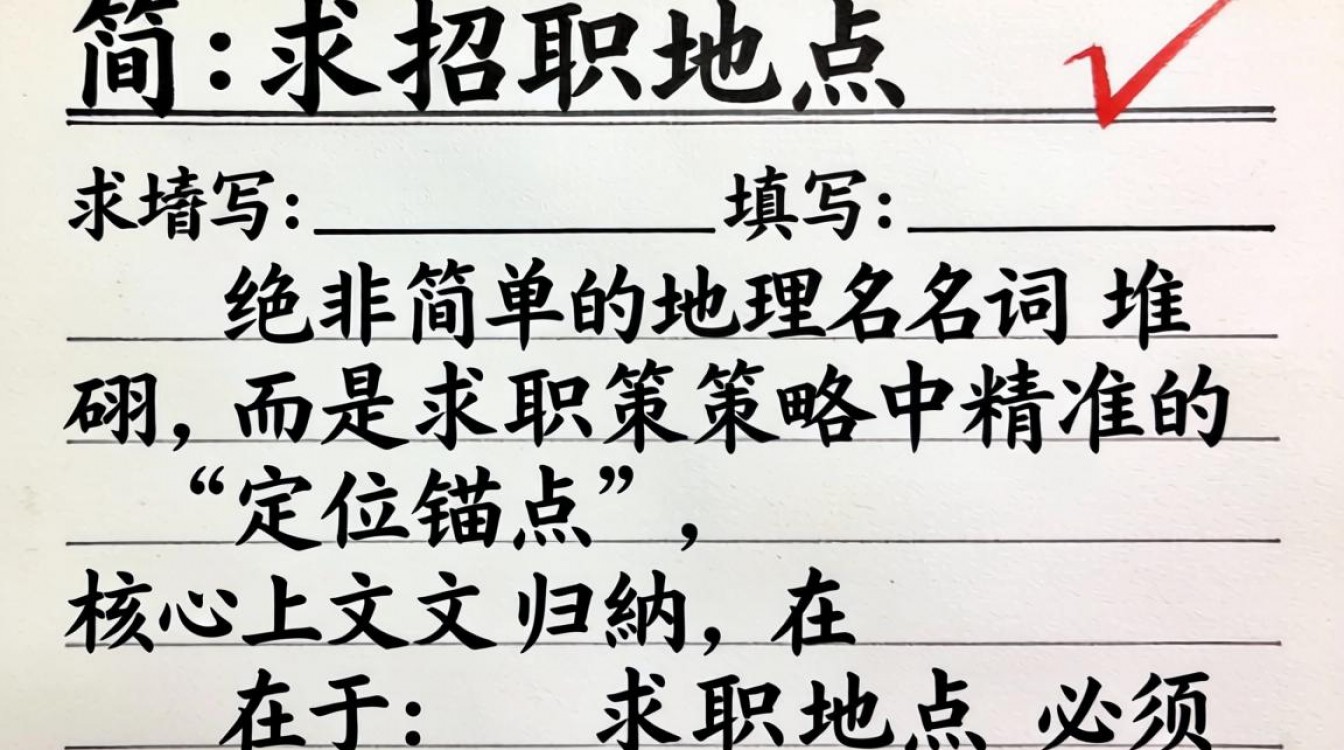 简:求招职地点
求墙写: 填写:
绝非简单的地理名名词 堆
硼,而是求职策策略中精准的
“定位锚点”,
核心上文文 归納,在
在于: 求职地点 必须